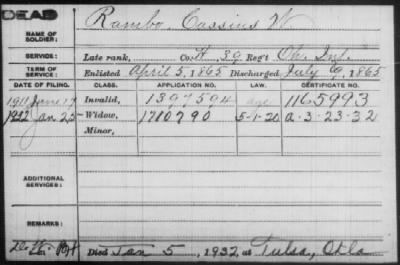 DEAD
NAME OF SOLDIER: Rambo, Cassius W
SERVICE: Late rank, Co. H 39 Reg't Oh. Inf.
TERM OF SERVICE: Enlisted April 5, 1865 Discharged July 9, 1865
DATE OF FILING. CLASS. APPLICATION NO. LAW. CERTIFICATE NO.
1911 June 17 Invalid, 1397594 age 1165993
1932 Jan 25 Widow, 1710790 5-1-20 a-3-23-32
Minor,
ADDITIONAL SERVICES:
REMARKS:
Died Jan 5, 1932, at Tulsa, Okla